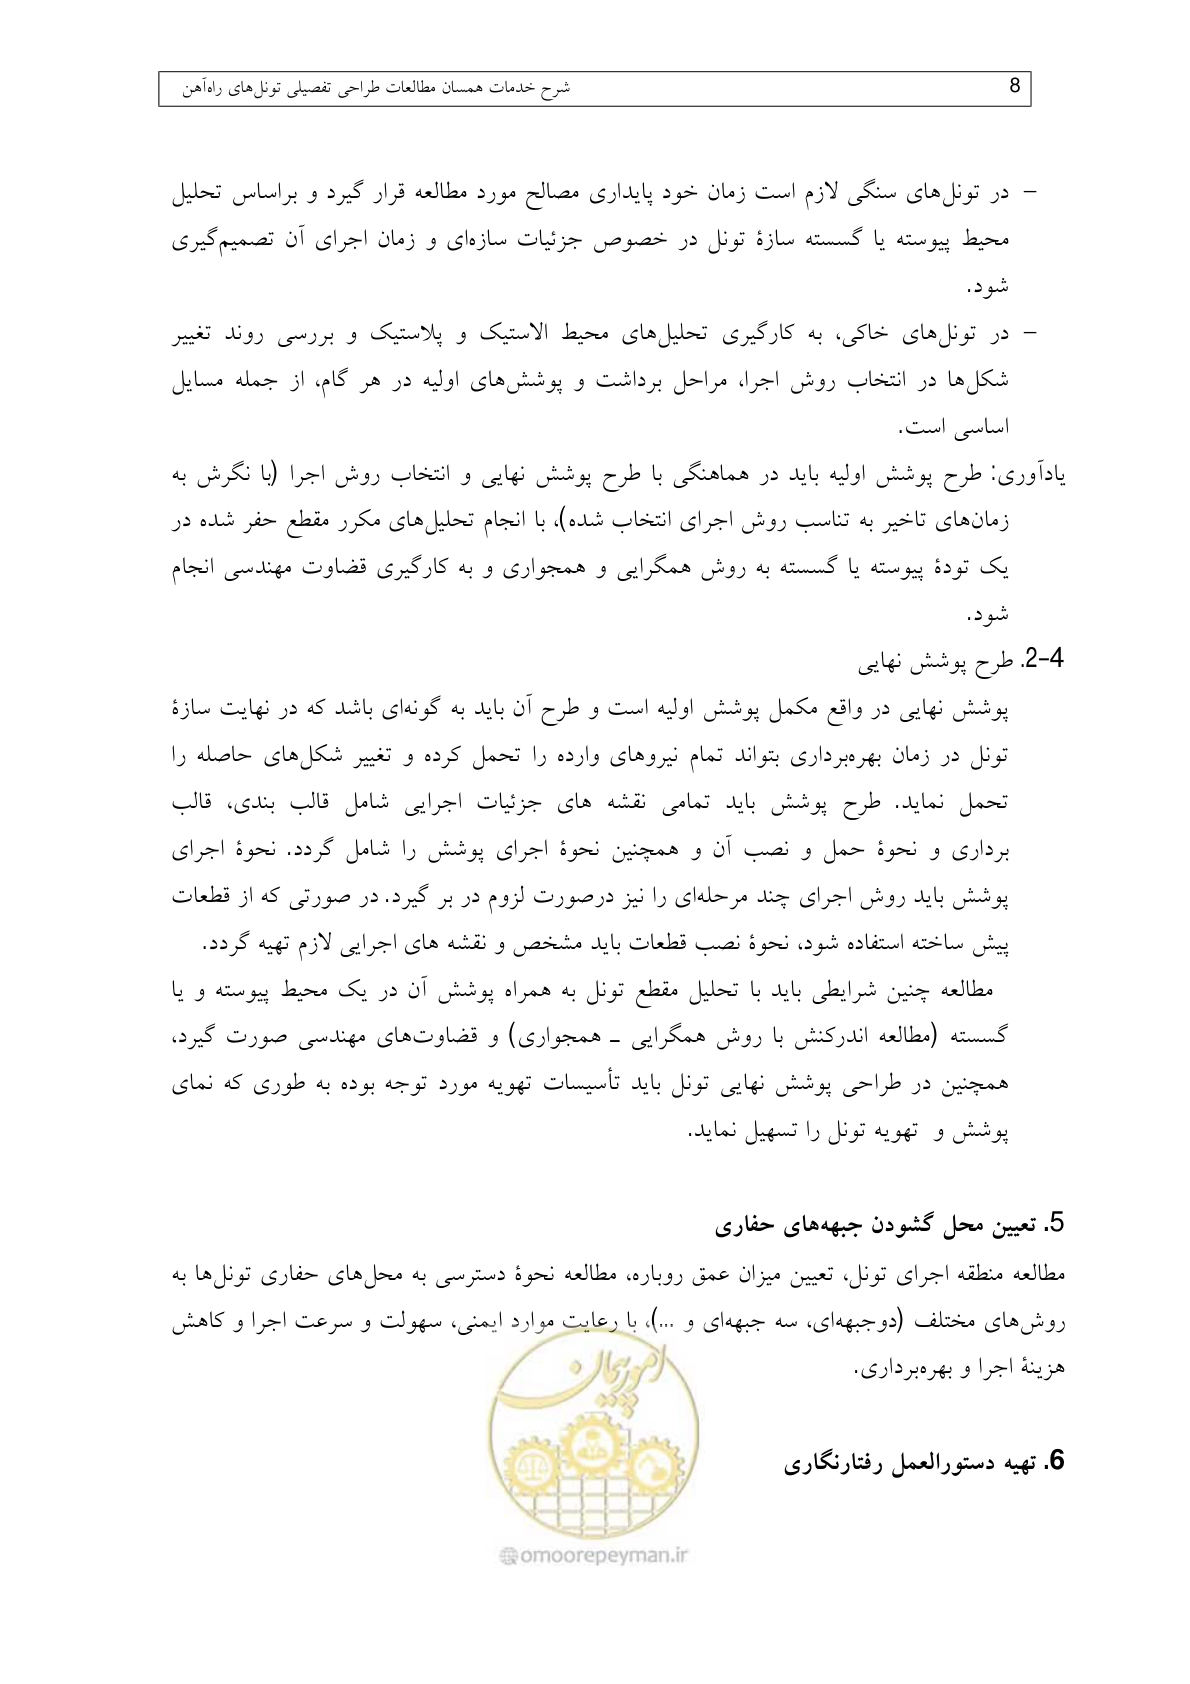 8 شرح خدمات همسان مطالعات طراحی تفصیلی تونل‌های راه‌آهن
– در تونل‌های سنگی لازم است زمان خود پایداری مصالح مورد مطالعه قرار گیرد و براساس تحلیل
محیط پیوسته یا گسسته سازهٔ تونل در خصوص جزئیات سازه‌ای و زمان اجرای آن تصمیم‌گیری
شود.
– در تونل‌های خاکی، به کارگیری تحلیل‌های محیط الاستیک و پلاستیک و بررسی روند تغییر
شکل‌ها در انتخاب روش اجرا، مراحل برداشت و پوشش‌های اولیه در هر گام، از جمله مسایل
اساسی است.
یادآوری: طرح پوشش اولیه باید در هماهنگی با طرح پوشش نهایی و انتخاب روش اجرا (با نگرش به
زمان‌های تاخیر به تناسب روش اجرای انتخاب شده)، با انجام تحلیل‌های مکرر مقطع حفر شده در
یک تودهٔ پیوسته یا گسسته به روش همگرایی و همجواری و به کارگیری قضاوت مهندسی انجام
شود.
2-4. طرح پوشش نهایی
پوشش نهایی در واقع مکمل پوشش اولیه است و طرح آن باید به گونه‌ای باشد که در نهایت سازهٔ
تونل در زمان بهره‌برداری بتواند تمام نیروهای وارده را تحمل کرده و تغییر شکل‌های حاصله را
تحمل نماید. طرح پوشش باید تمامی نقشه های جزئیات اجرایی شامل قالب بندی، قالب
برداری و نحوهٔ حمل و نصب آن و همچنین نحوهٔ اجرای پوشش را شامل گردد. نحوهٔ اجرای
پوشش باید روش اجرای چند مرحله‌ای را نیز درصورت لزوم در بر گیرد. در صورتی که از قطعات
پیش ساخته استفاده شود، نحوهٔ نصب قطعات باید مشخص و نقشه های اجرایی لازم تهیه گردد.
مطالعه چنین شرایطی باید با تحلیل مقطع تونل به همراه پوشش آن در یک محیط پیوسته و یا
گسسته (مطالعه اندرکنش با روش همگرایی ـ همجواری) و قضاوت‌های مهندسی صورت گیرد،
همچنین در طراحی پوشش نهایی تونل باید تأسیسات تهویه مورد توجه بوده به طوری که نمای
پوشش و تهویه تونل را تسهیل نماید.
5. تعیین محل گشودن جبهه‌های حفاری
مطالعه منطقه اجرای تونل، تعیین میزان عمق روباره، مطالعه نحوهٔ دسترسی به محل‌های حفاری تونل‌ها به
روش‌های مختلف (دوجبهه‌ای، سه جبهه‌ای و ...)، با رعایت موارد ایمنی، سهولت و سرعت اجرا و کاهش
هزینهٔ اجرا و بهره‌برداری.
امور پیمان
6. تهیه دستورالعمل رفتارنگاری
@omoorepeyman.ir